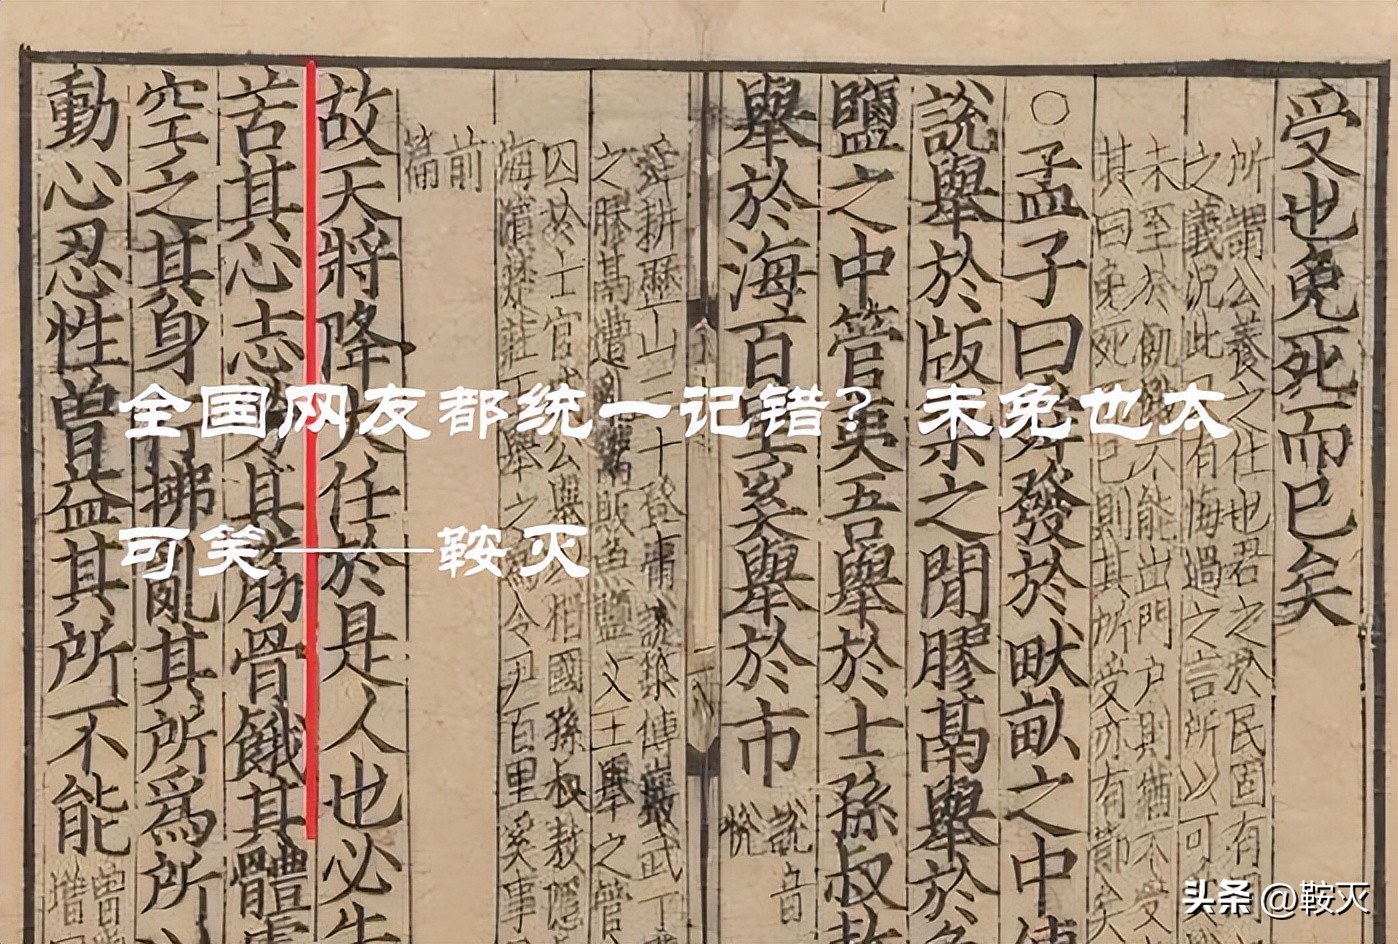 受也免死而已矣
所謂公養之仕也君之於民固有
之義況此又有悔過之言所以可
未至於飢餓不能出門户則猶不受
其曰免死而已則其所受亦有節矣
○孟子曰舜發於畎畝之中傅
說舉於版築之閒膠鬲舉於魚
鹽之中管夷吾舉於士孫叔敖
舉於海百里奚舉於市
說音
悅
舜耕歷山三十登庸說築傅巖武丁
之膠鬲遭亂鬻販魚鹽文王舉之管
囚於士官桓公舉相國孫叔敖隱
海濱楚莊王舉之為令尹百里奚事
前
篇
故天將降大任於是人也必先
苦其心志勞其筋骨餓其體膚
空乏其身行拂亂其所爲所以
動心忍性曾益其所不能
曾
增
全国网友都统一记错？未免也太
可笑——鞍灭
头条 @鞍灭